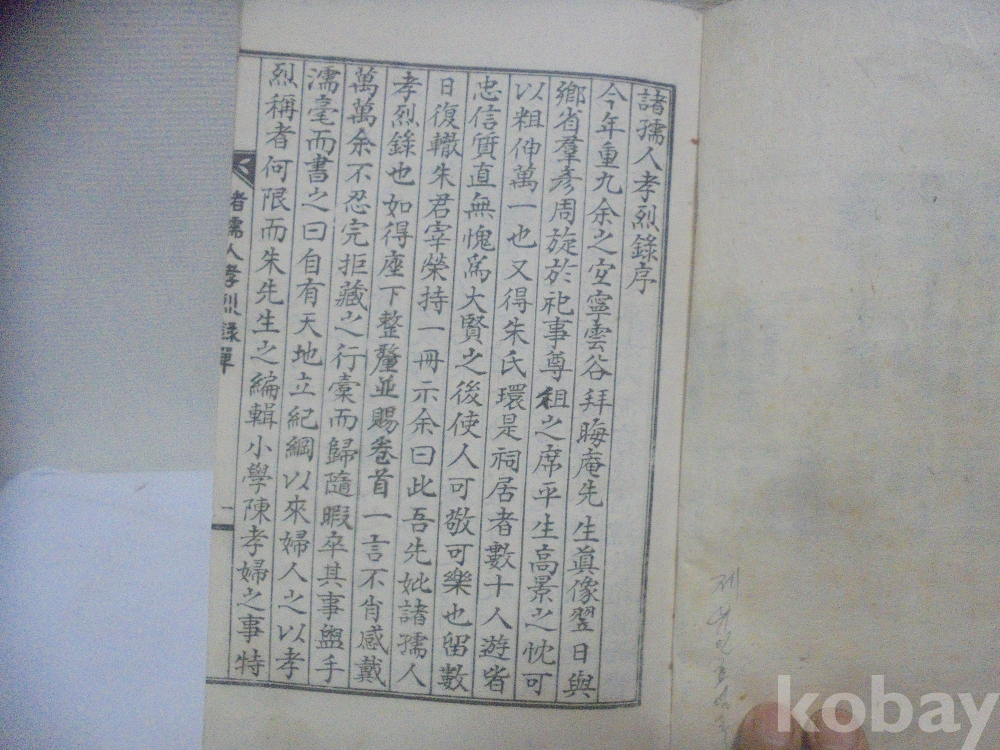 諸孺人孝烈錄序
今年重九余之安寧雲谷拜晦庵先生眞像翌日與
鄉省羣彥周旋於祀事尊祖之席平生高景之忱可
以粗伸萬一也又得朱氏環是祠居者數十人遊皆
忠信質直無愧爲大賢之後使人可敬可樂也留數
日復轍朱君宰榮持一冊示余曰此吾先妣諸孺人
孝烈錄也如得座下整釐並賜卷首一言不肖感戴
萬萬余不忍完拒藏之行橐而歸隨暇卒其事盥手
濡毫而書之曰自有天地立紀綱以來婦人之以孝
烈稱者何限而朱先生之編輯小學陳孝婦之事特
諸孺人孝烈錄單
一
kobay